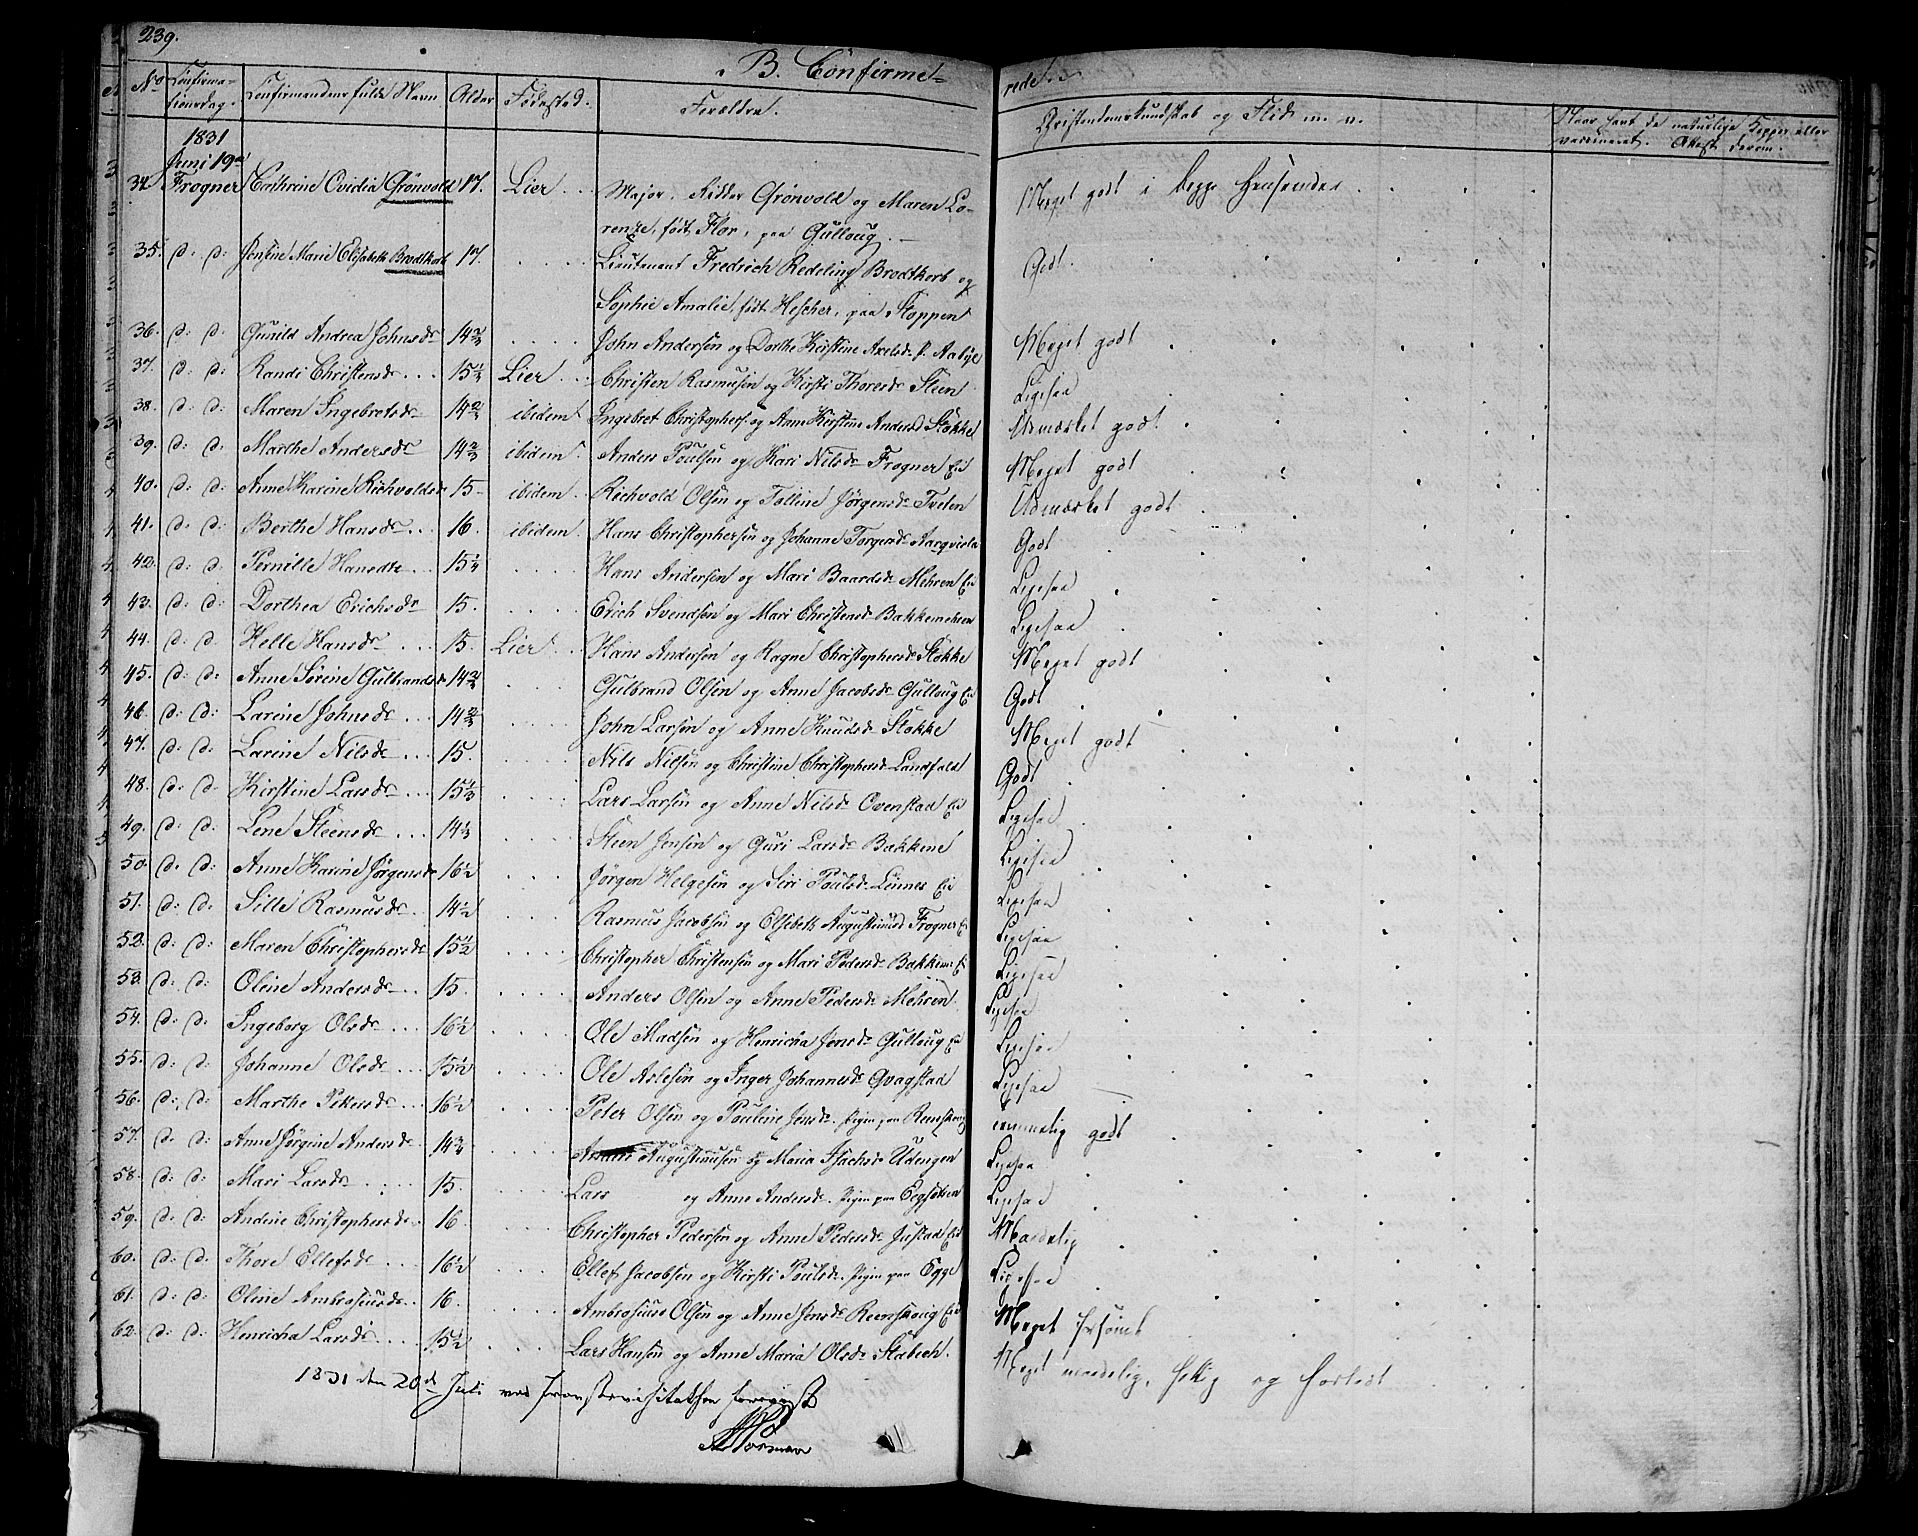 239.
B. Confirme=
rede.
No Confirma=tionsdag. Confirmandens fulde Navn Alder Fødested. Forældre. Christendomskundskab og Flid m. v. Naar havt de naturlige Kopper eller vaccineret. Attest derom.
1831
Juni 19de
34. Frogner Cathrine Ovidia Grönvold 17. Lier Major, Ridder Grönvold og Maren Lo-renze, født Flor, paa Gulloug. Meget godt i begge Henseender
35. d: d: Jensine Marie Elisabeth Brodtkorb 17. Lieutenant Fredrich Redeling Brodtkorb og Sophie Amalie, født Hescher, paa Stoppen Godt.
36. d: d: Gunild Andrea Johnsdr 14¾ John Andersen og Dorthe Kirstine Axelsdr p. Aabye Meget godt
37. d: d: Randi Christensdr 15½ Lier Christen Rasmusen og Kirsti Thoresdr Steen Ligesaa
38. d: d: Maren Ingebretsdr 14⅔ ibidem Ingebret Christophers. og Anne Kirstine Andersd Stokke Udmærket godt
39. d: d: Marthe Andersdr 14⅔ ibidem Anders Poulsen og Kari Nilsdr Frogner Eie Meget godt
40. d: d: Anne Karine Richvoldsdr 15 ibidem Richvold Olsen og Tolline Jörgensdr Tveten Udmærket godt
41. d: d: Berthe Hansdr 16. ibidem Hans Christophersen og Johanne Torgersdr Aarqvisla Godt
42. d: d: Pernille Hansdtr 15¼ Hans Andersen og Mari Baardsdr Mehren Eie Ligesaa
43. d: d: Dorthea Erichsdr 15. Erich Svendsen og Mari Christensdr Bakkemehren Ligesaa
44. d: d: Helle Hansdr 15. Lier Hans Andersen og Ragne Christophersdr Stokke Meget godt
45. d: d: Anne Sörine Gulbrandsdr 14¾ Gulbrand Olsen og Anne Jacobsdr Gulloug Eie Godt
46. d: d: Larine Johnsdr 14⅔ John Larsen og Anne Knudsdr Stokke Meget godt
47. d: d: Larine Nilsdr 15. Nils Nilsen og Christine Christophersdr Landfald Godt
48. d: d: Kirstine Larsdr 15⅓ Lars Larsen og Anne Nilsdr Ovenstad Eie Ligesaa
49. d: d: Lene Steensdr 14⅓ Steen Jensen og Guri Larsdr Bakkene Ligesaa
50. d: d: Anne Karine Jörgensdr 16½ Jörgen Helgesen og Siri Poulsdr Linnes Eie Ligesaa
51. d: d: Sille Rasmusdr 14½ Rasmus Jacobsen og Elsebeth Augustinusd Frogner E Ligesaa
52. d: d: Maren Christophersdr 15½ Christopher Christensen og Mari Pedersdr Bakken Ei Ligesaa
53. d: d: Oline Andersdr 15. Anders Olsen og Anne Pedersdr Mehren Ligesaa
54. d: d: Ingeborg Olsdr 16½ Ole Madsen og Henricha Jensdr Gulloug Ei Ligesaa
55. d: d: Johanne Olsdr 15½ Ole Aslesen og Inger Johannesdr Qvagstad Ligesaa
56. d: d: Marthe Petersdr 16½ Peter Olsen og Pouline Jensdr. Pigen paa Reenskoug Temmelig godt
57. d: d: Anne Jörgine Andersdr 14¾ Anders Augustinusen og Maria Isachsdr Udengen Ligesaa
58. d: d: Mari Larsdr 15. Lars og Anne Andersdr. Pigen paa Egsöten Ligesaa
59. d: d: Andine Christophersdr 16. Christopher Pedersen og Anne Pedersdr Justad Eie Maadelig
60. d: d: Thore Ellefsdr 16½ Ellef Jacobsen og Kirsti Poulsdr. Pigen paa Egge Ligesaa
61. d: d: Oline Ambrosiusdr 16. Ambrosius Olsen og Anne Jensdr Reenskoug Eie Meget forsömt
62. d: d: Henricha Larsdr 15½ Lars Hansen og Anne Maria Olsdr Stabech Meget maadelig,
1831 den 20d Juli ved Provstevisitatsen foreviist